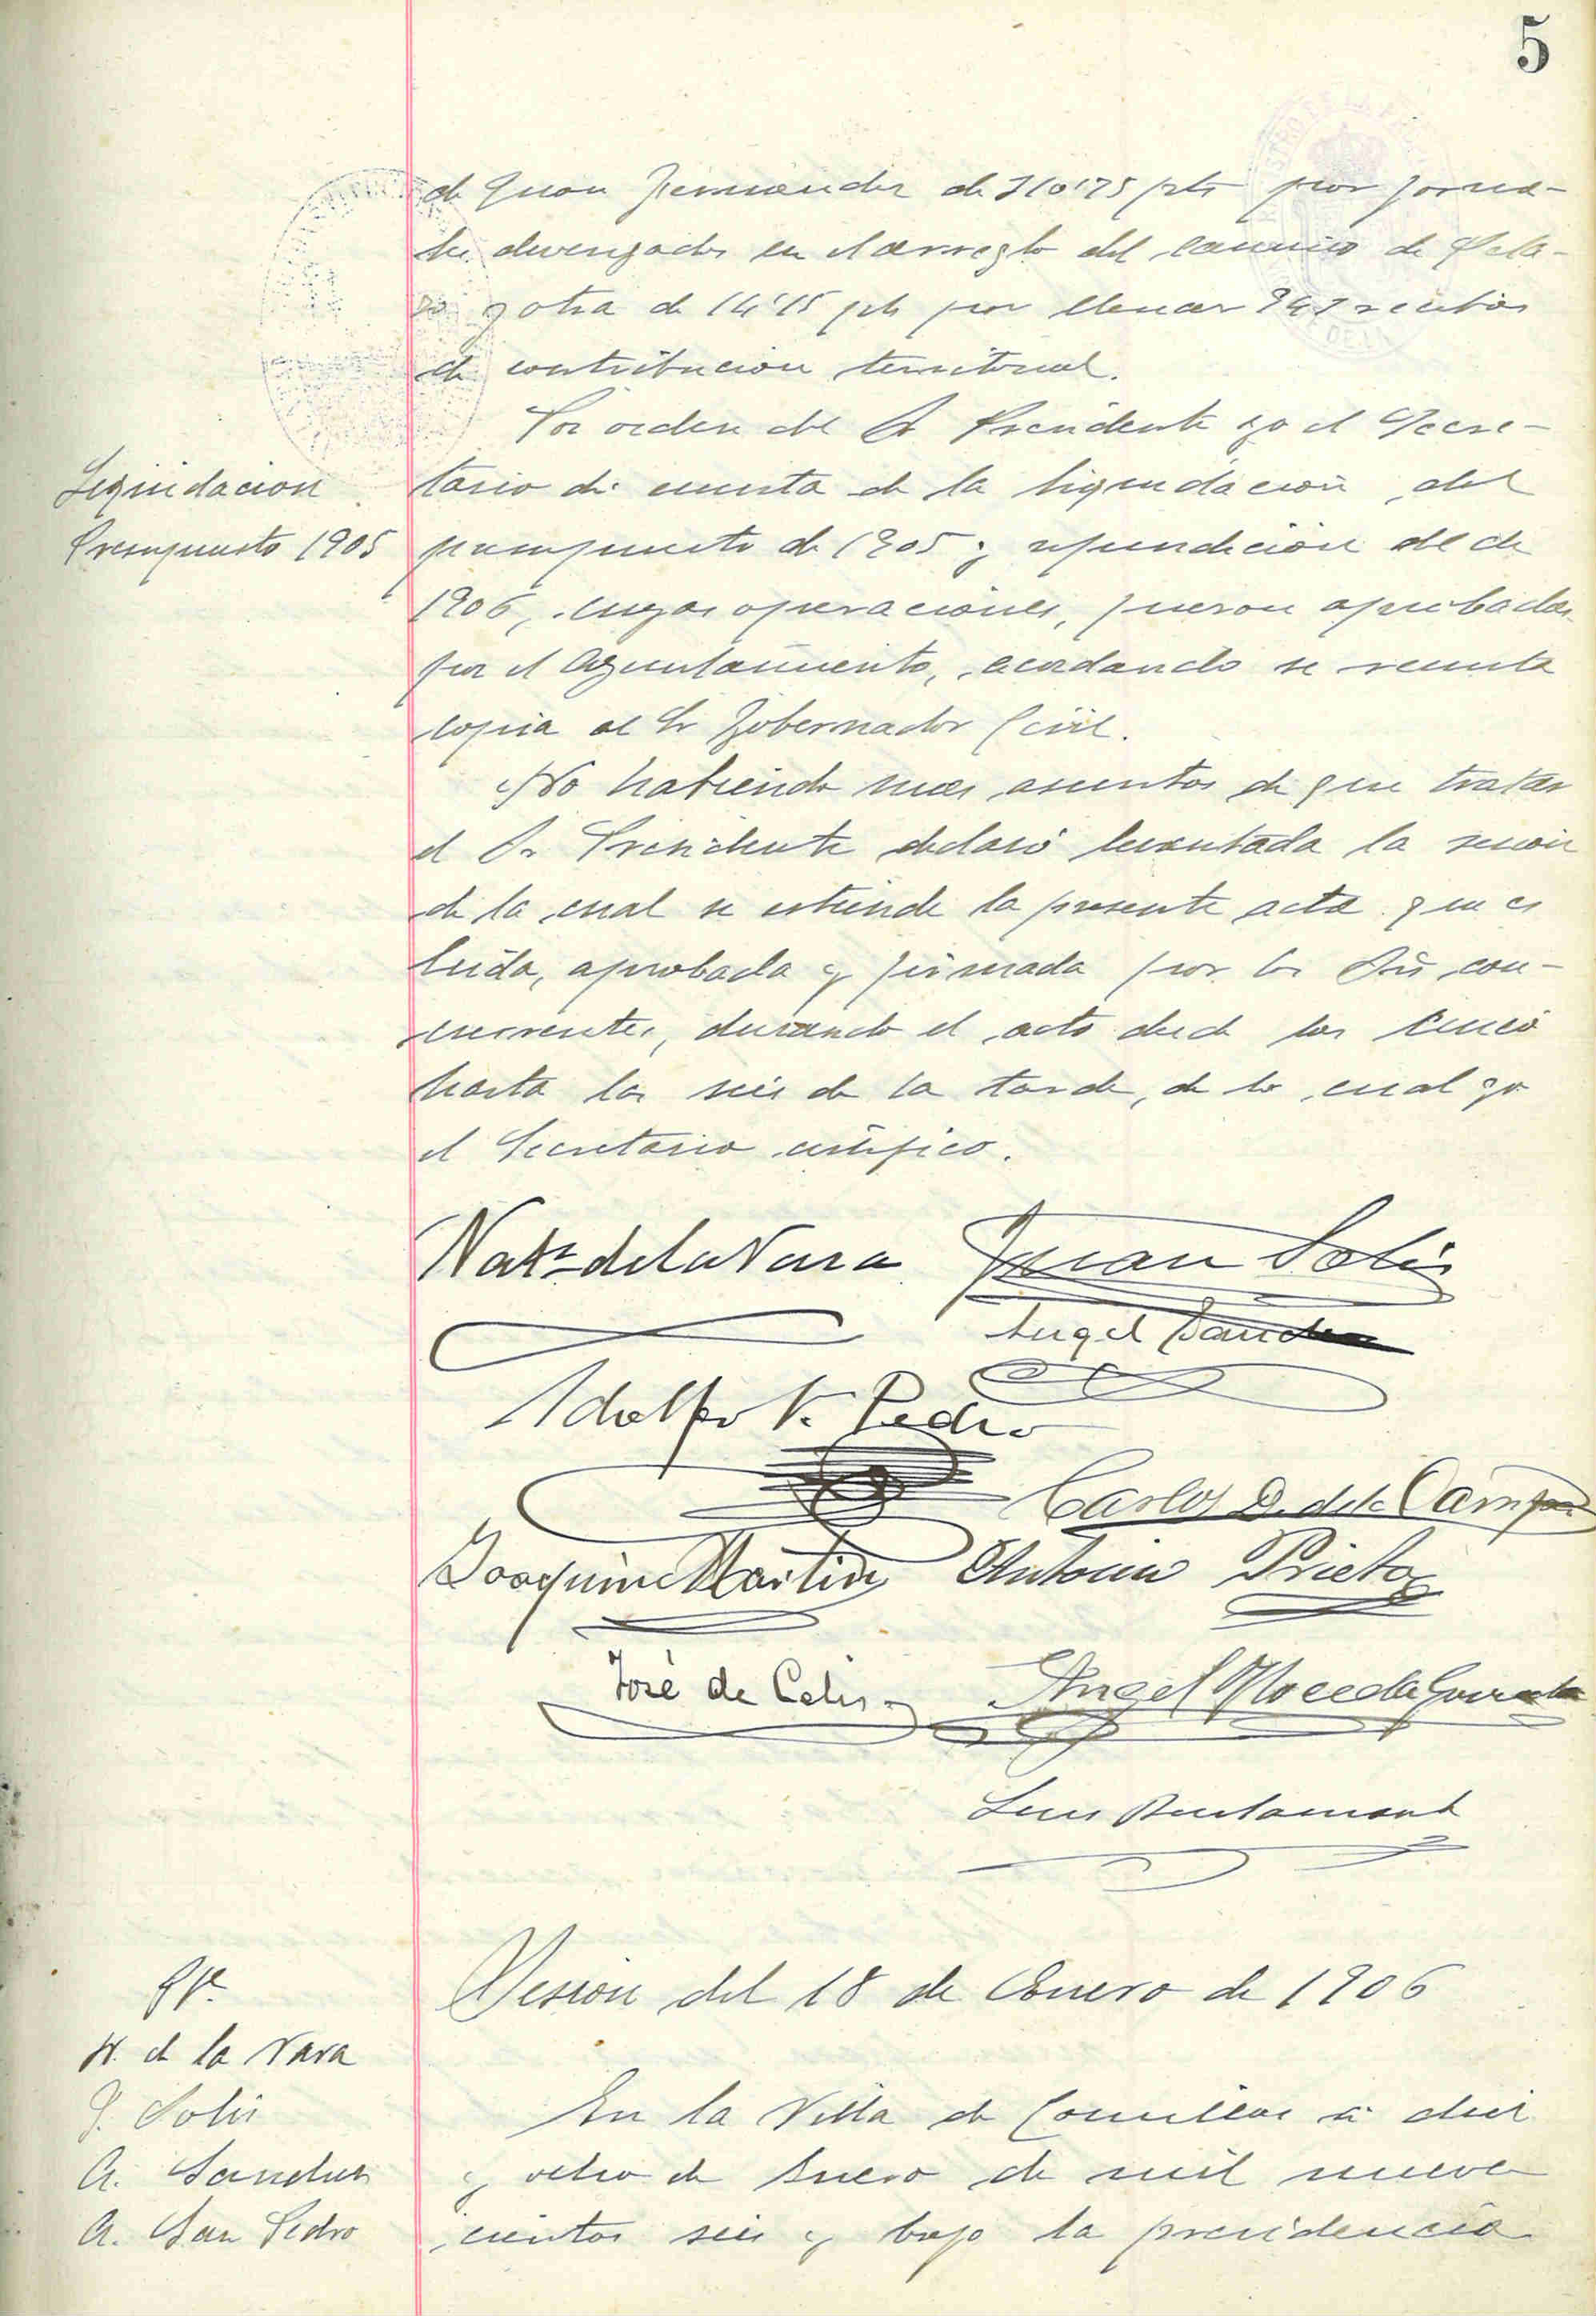 5
de Juan Fernandez de 310'75 pts por jorna-
les devengados en el arreglo del camino de
y otra de 14'15 pts por llenar recibos
de contribucion territorial.
Por orden del Sr Presidente yo el Secre-
Liquidacion
Presupuesto 1905
tario di cuenta de la liquidacion del
presupuesto de 1905 y refundicion del de
1906, cuyas operaciones, fueron aprobadas
por el Ayuntamiento, acordando se remita
copia al Sr Gobernador Civil.
No habiendo mas asuntos de que tratar
el Sr Presidente declaró levantada la sesion
de la cual se estiende la presente acta que es
leida, aprobada y firmada por los Srs con-
currentes, durando el acto desde las cinco
hasta las seis de la tarde, de lo cual yo
el Secretario certifico.
Nat. de la Vara
Juan Solis
Angel Sanchez
Adolfo S. Pedro
Carlos D. de la Campa
Joaquin Martin
Antonio Prieto
José de Celis
Angel
Luis Bustamante
Sesion del 18 de Enero de 1906
N. de la Vara
J. Solis
A. Sanchez
A. San Pedro
En la Villa de Comillas á diez
y ocho de Enero de mil nueve
cientos seis y bajo la presidencia